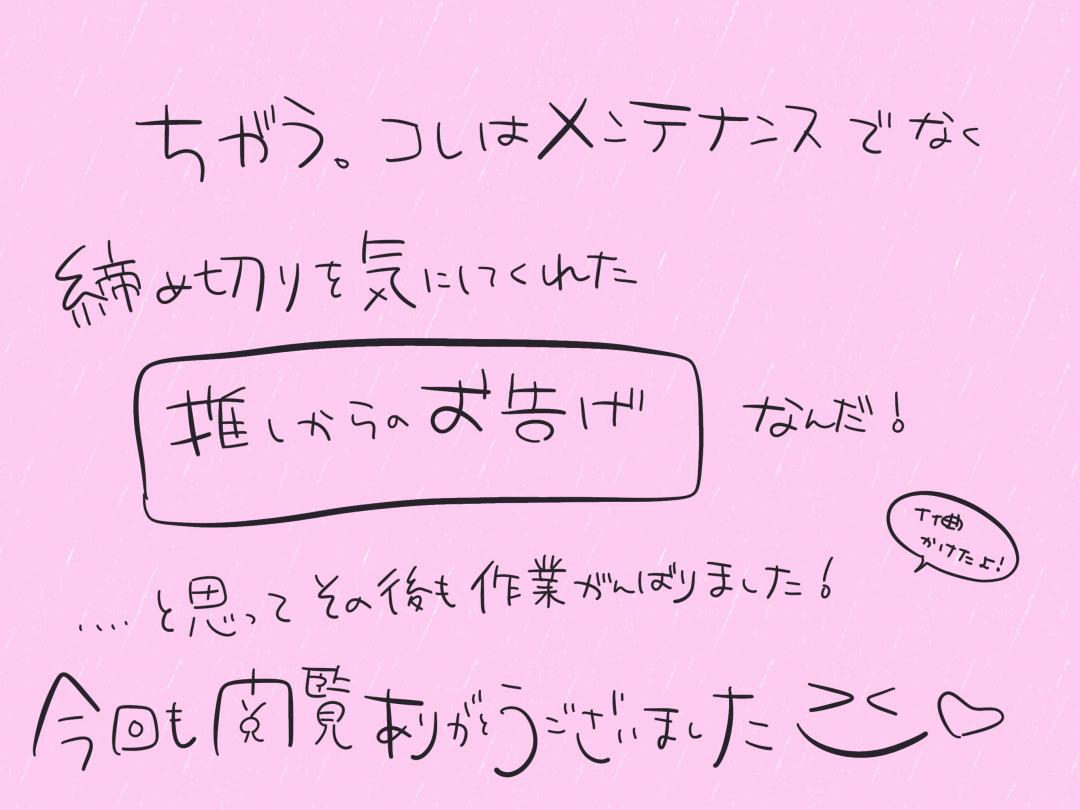 ちがう。コレはメンテナンスでなく
締め切りを気にしてくれた
推しからのお告げ
なんだ！
かけたよ！
‥‥と思ってその後も作業がんばりました！
今回も閲覧ありがとうございました